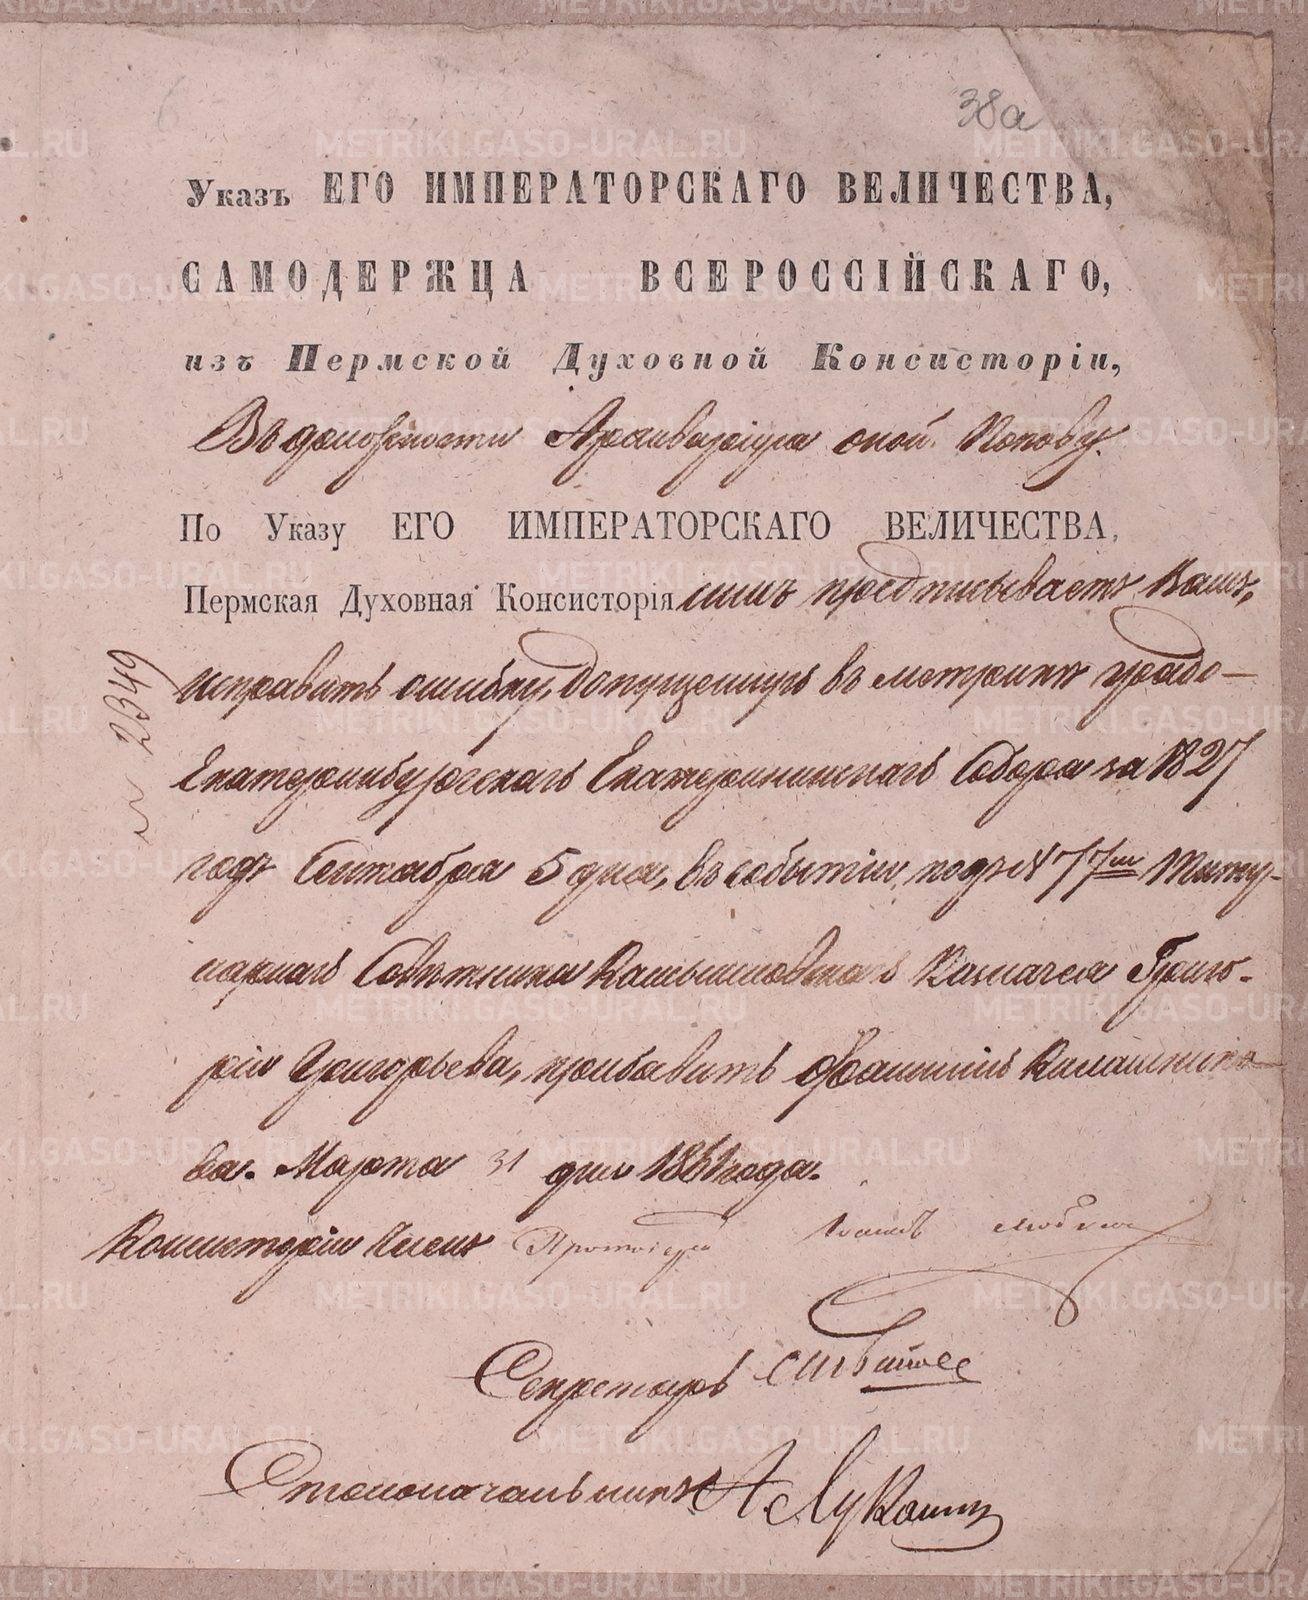 38а
Указъ ЕГО ИМПЕРАТОРСКАГО ВЕЛИЧЕСТВА,
САМОДЕРЖЦА ВСЕРОССІЙСКАГО,
изъ Пермской Духовной Консисторіи,
Въ должности Архиваріуса оной Попову.
По Указу ЕГО ИМПЕРАТОРСКАГО ВЕЛИЧЕСТВА,
Пермская Духовная Консисторія симъ предписываетъ Вамъ,
исправить ошибку, допущенную въ метрикѣ градо-
№ 2349
Екатеринбургскаго Екатерининскаго Собора за 1827
годъ Сентября 5 дня, въ событіи, подъ № 77мъ Титу-
лярнаго Совѣтника Камышловскаго Казначея Григо-
рія Григорьева, прибавить фамилію Калашнико-
ва. Марта 31 дня 1861 года.
Консисторіи Членъ Протоіерей Іоаннъ
Секретарь
Столоначальникъ А. Луканинъ
METRIKI.GASO-URAL.RU